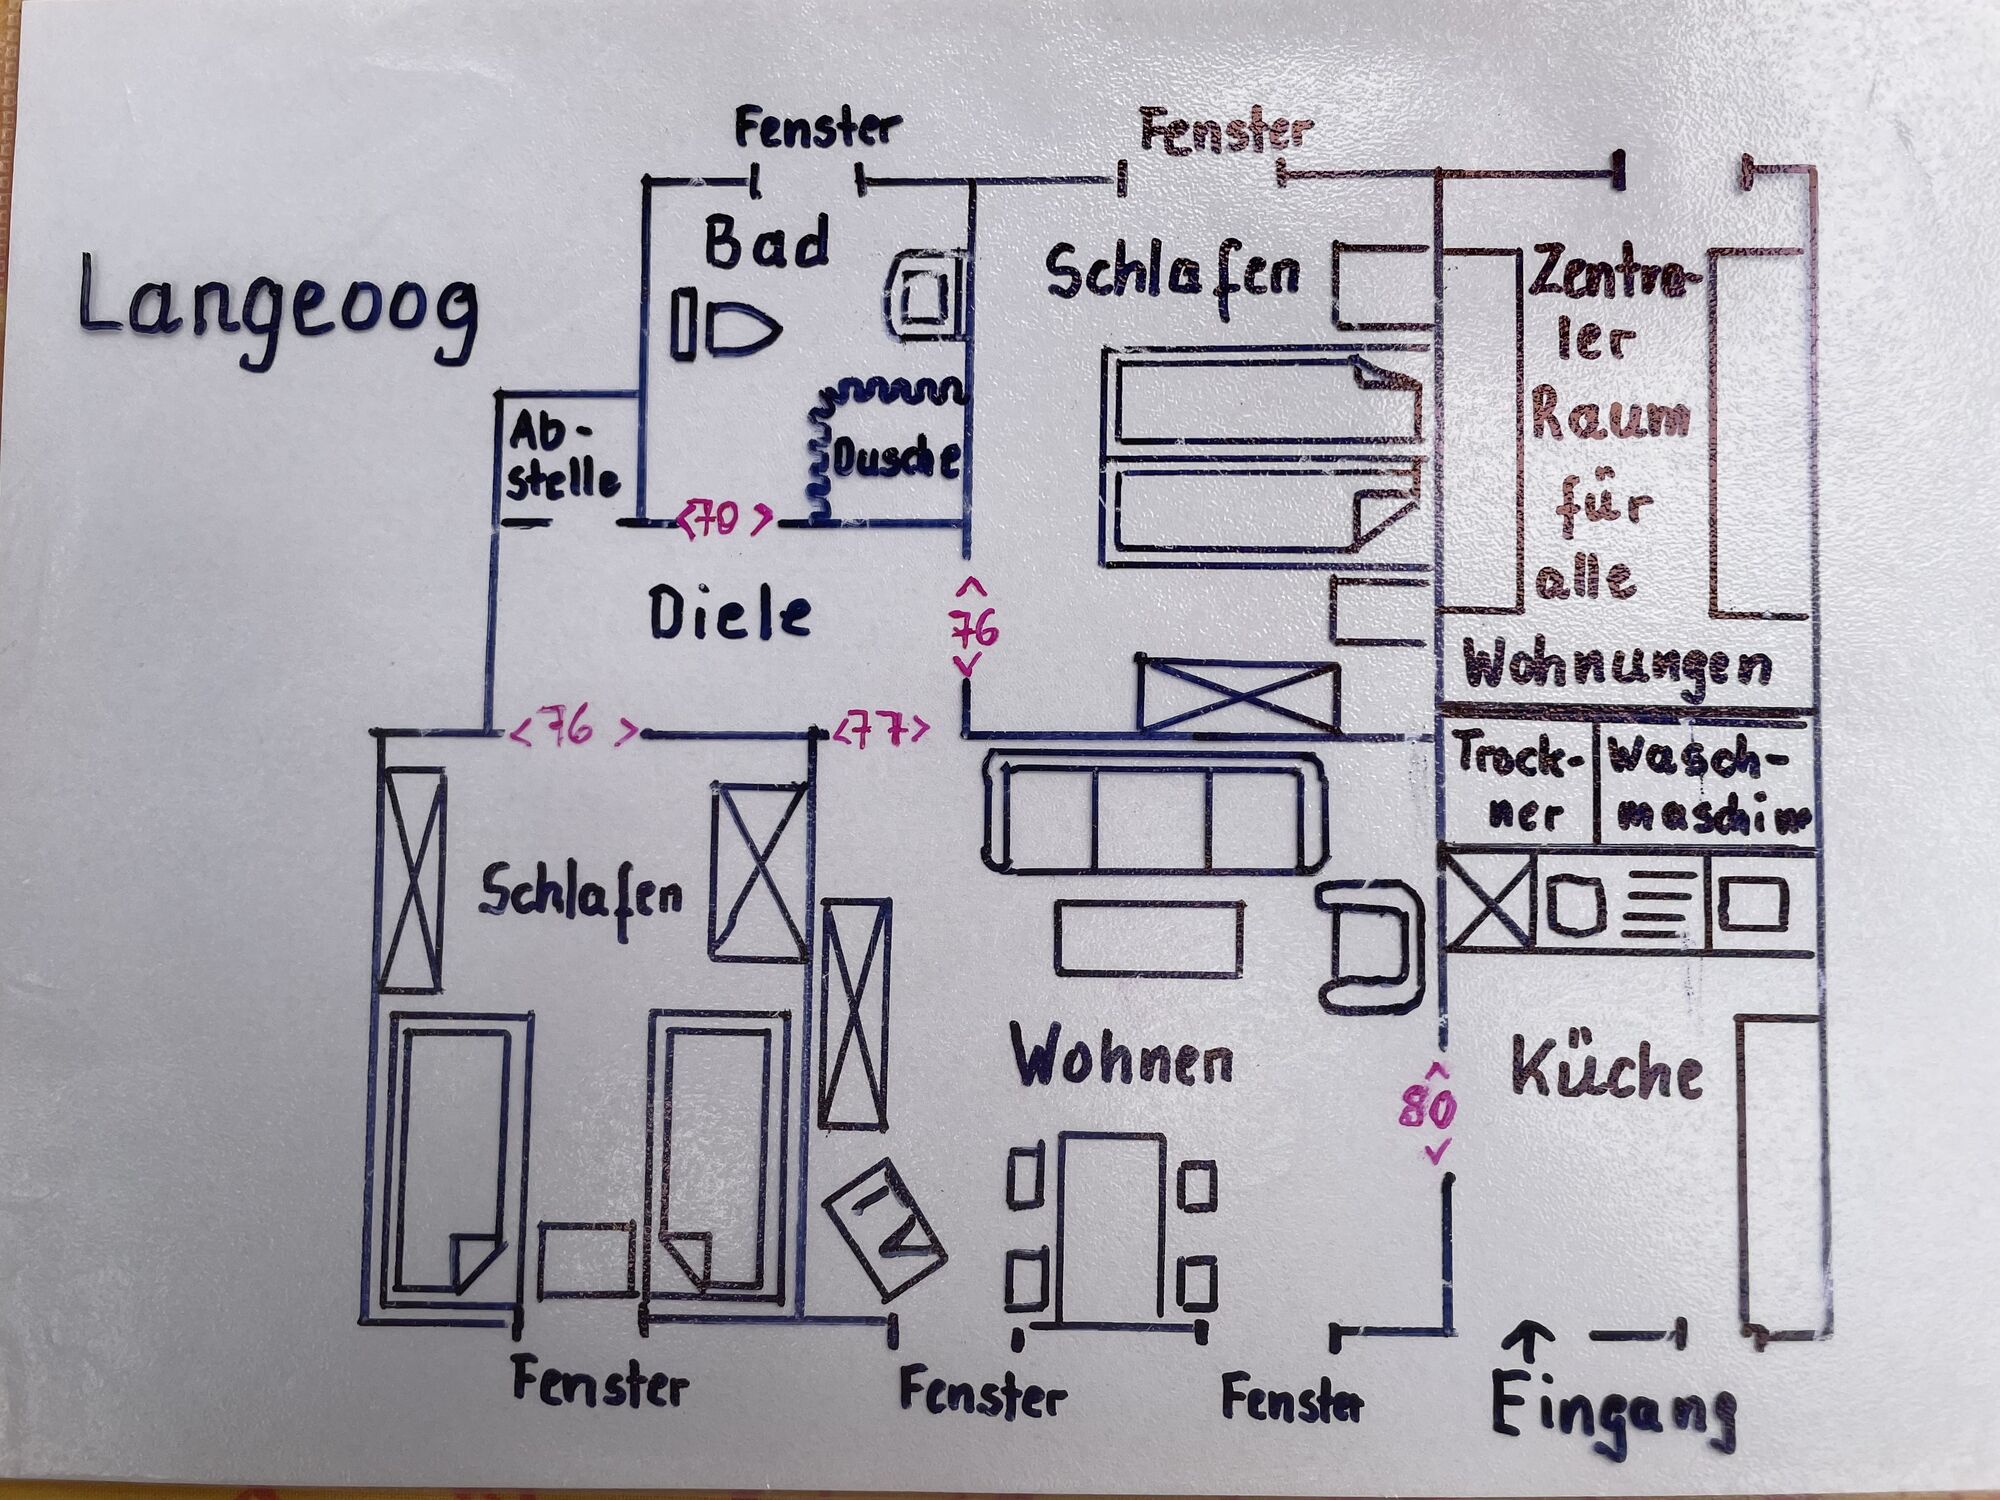 Fenster
Fenster
Langeoog
Bad
Schlafen
Zentra-
ler
Raum
für
alle
Wohnungen
Ab-
stelle
Dusche
<70>
Diele
<76>
<76>
<77>
Trock-
ner
Wasch-
maschine
Schlafen
Wohnen
Küche
<80>
TV
Fenster
Fenster
Fenster
↑
Eingang